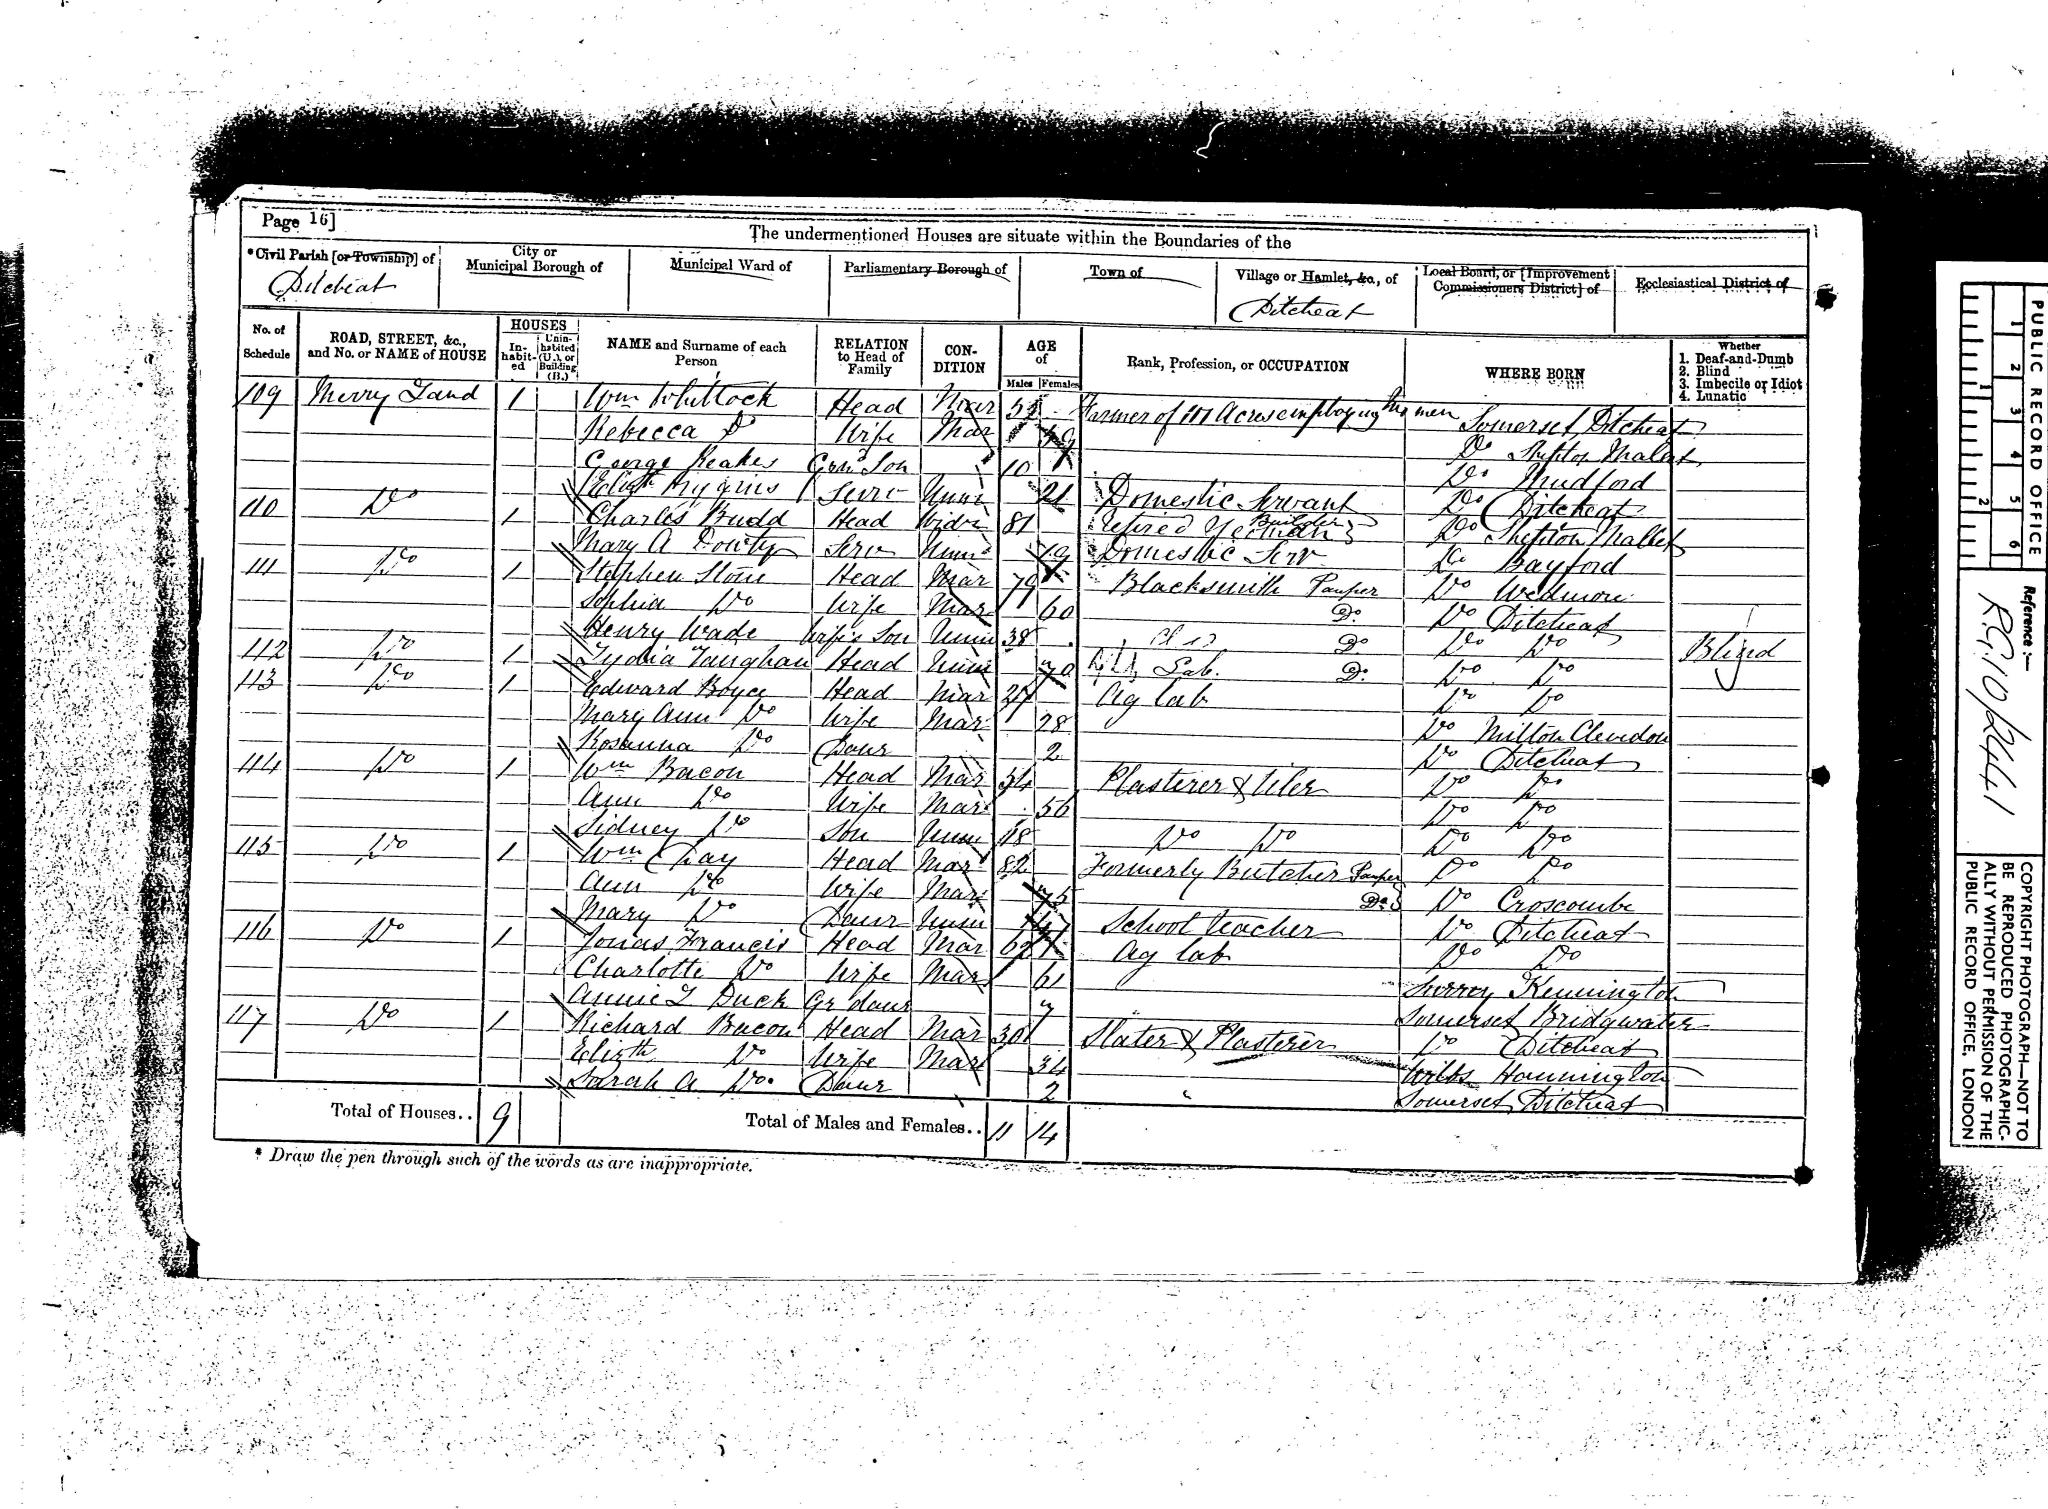 Page 16]
The undermentioned Houses are situate within the Boundaries of the
*Civil Parish [or Township] of City or Municipal Borough of Municipal Ward of Parliamentary Borough of Town of Village or Hamlet, &c., of Local Board, or [Improvement Commissioners District] of Ecclesiastical District of
Ditcheat Ditcheat
No. of Schedule ROAD, STREET, &c., and No. or NAME of HOUSE HOUSES In-habit-ed Unin-habited (U.), or Building (B.) NAME and Surname of each Person RELATION to Head of Family CON-DITION AGE of Males Females Rank, Profession, or OCCUPATION WHERE BORN Whether 1. Deaf-and-Dumb 2. Blind 3. Imbecile or Idiot 4. Lunatic
109 Merry Land 1 Wm Whittock Head Mar Farmer of 101 Acres employing men Somerset Ditcheat
Rebecca Do Wife Mar 49 Do Shepton Mallet
George Reakes Son 10 Do Mudford
Serv Unm 21 Domestic Servant Do Ditcheat
110 Do 1 Charles Budd Head Widr 81 Retired Yeoman Builder Do Shepton Mallet
Mary A Serv Unm 19 Domestic Serv Do Bayford
111 Do 1 Stephen Stone Head Mar 79 Blacksmith Pauper Do Wedmore
Sophia Do Wife Mar 60 Do Do Ditcheat
Henry Wade Wife's Son Unm 38 Do Do Do Blind
112 Do 1 Lydia Vaughan Head Unm 70 Lab. Do Do Do
113 Do 1 Edward Boyce Head Mar 27 Ag lab Do Do
Mary Ann Do Wife Mar 28 Do Milton Clevedon
Rosanna Do Daur 2 Do Ditcheat
114 Do 1 Wm Bacon Head Mar 54 Plasterer & tiler Do Do
Ann Do Wife Mar 56 Do Do
Sidney Do Son Unm 18 Do Do Do Do
115 Do 1 Wm Head Mar 82 Formerly Butcher Pauper Do Do
Ann Do Wife Mar 75 Do Do Croscombe
Mary Do Daur Unm School teacher Do Ditcheat
116 Do 1 Jonas Francis Head Mar 62 Ag lab Do Do
Charlotte Do Wife Mar 61 Surrey Kennington
Annie L Duck Gr daur 7 Somerset Bridgwater
117 Do 1 Richard Bacon Head Mar 30 Slater & Plasterer Do Ditcheat
Elizth Do Wife Mar 34 Wilts Hannington
Sarah A Do Daur 2 Somerset Ditcheat
Total of Houses.. 9 Total of Males and Females.. 11 14
* Draw the pen through such of the words as are inappropriate.
PUBLIC RECORD OFFICE
1 2 3 4 5 6
1 2
Reference :—
R.G. 10/2441
COPYRIGHT PHOTOGRAPH—NOT TO
BE REPRODUCED PHOTOGRAPHIC-
ALLY WITHOUT PERMISSION OF THE
PUBLIC RECORD OFFICE, LONDON